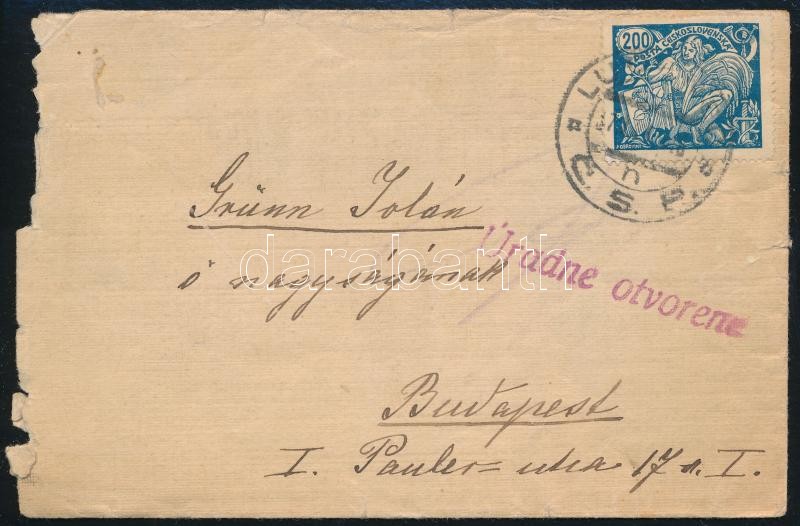 200
POŠTA ČESKOSLOVENSKÁ
S. P.
Grünn Jolán
ő nagyságának
Úradne otvorené
darabanth
Budapest
I. Pauler = utca 17 I.